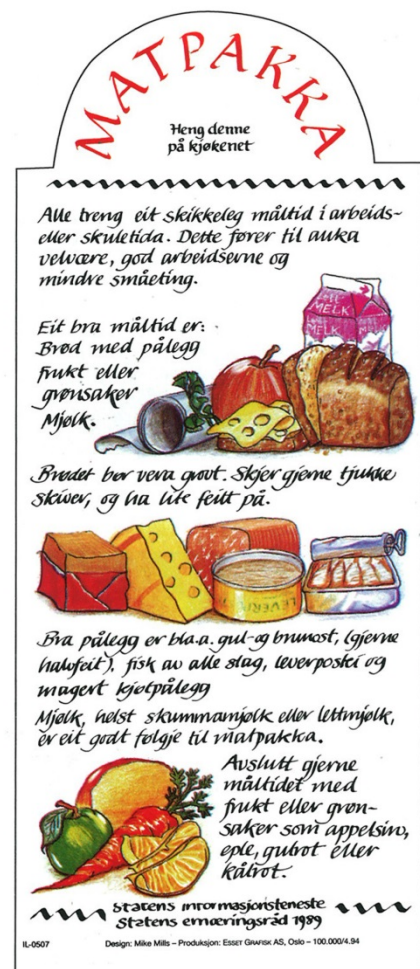 MATPAKKA
Heng denne
på kjøkenet
Alle treng eit skikkeleg måltid i arbeids-
eller skuletida. Dette fører til auka
velvære, god arbeidsevne og
mindre småeting.
Eit bra måltid er:
Brød med pålegg
frukt eller
grønsaker
Mjølk.
LETT MELK
LETT MELK
Brødet bør vera grovt. Skjer gjerne tjukke
skiver, og ha lite feitt på.
LEVERP
Bra pålegg er bl.a. gul- og brunost, (gjerne
halvfeit), fisk av alle slag, leverpostei og
magert kjøtpålegg
Mjølk, helst skummamjølk eller lettmjølk,
er eit godt følgje til matpakka.
Avslutt gjerne
måltidet med
frukt eller grøn-
saker som appelsin,
eple, gulrot eller
kålrot.
Statens informasjonsteneste
Statens ernæringsråd 1989
IL-0507
Design: Mike Mills – Produksjon: ESSET GRAFISK AS, Oslo – 100.000/4.94